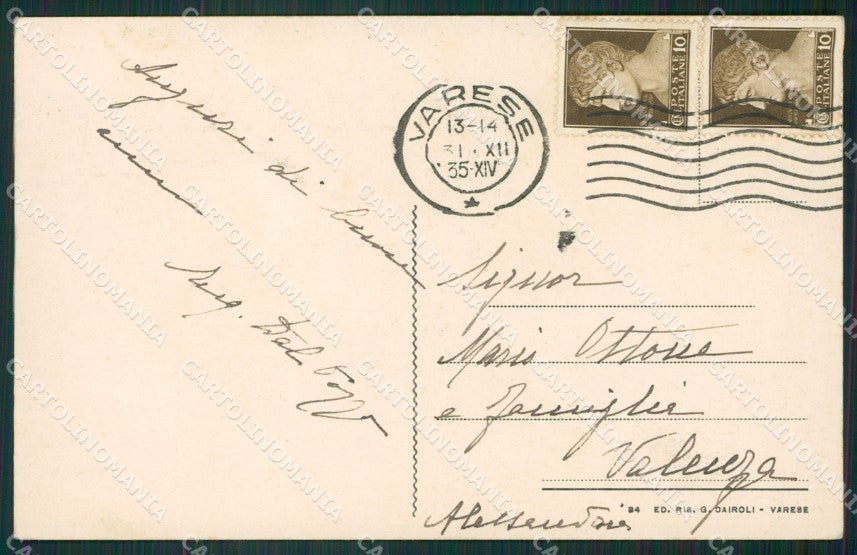 Auguri di buon
anno
Aug. Dal Pozzo
VARESE
13-14
31 · XII
35·XIV
10
POSTE
ITALIANE
10
POSTE
ITALIANE
Signor
Mario Ottone
e famiglia
Valenza
Alessandria
84 ED. RIS. G. CAIROLI - VARESE
CARTOLINOMANIA